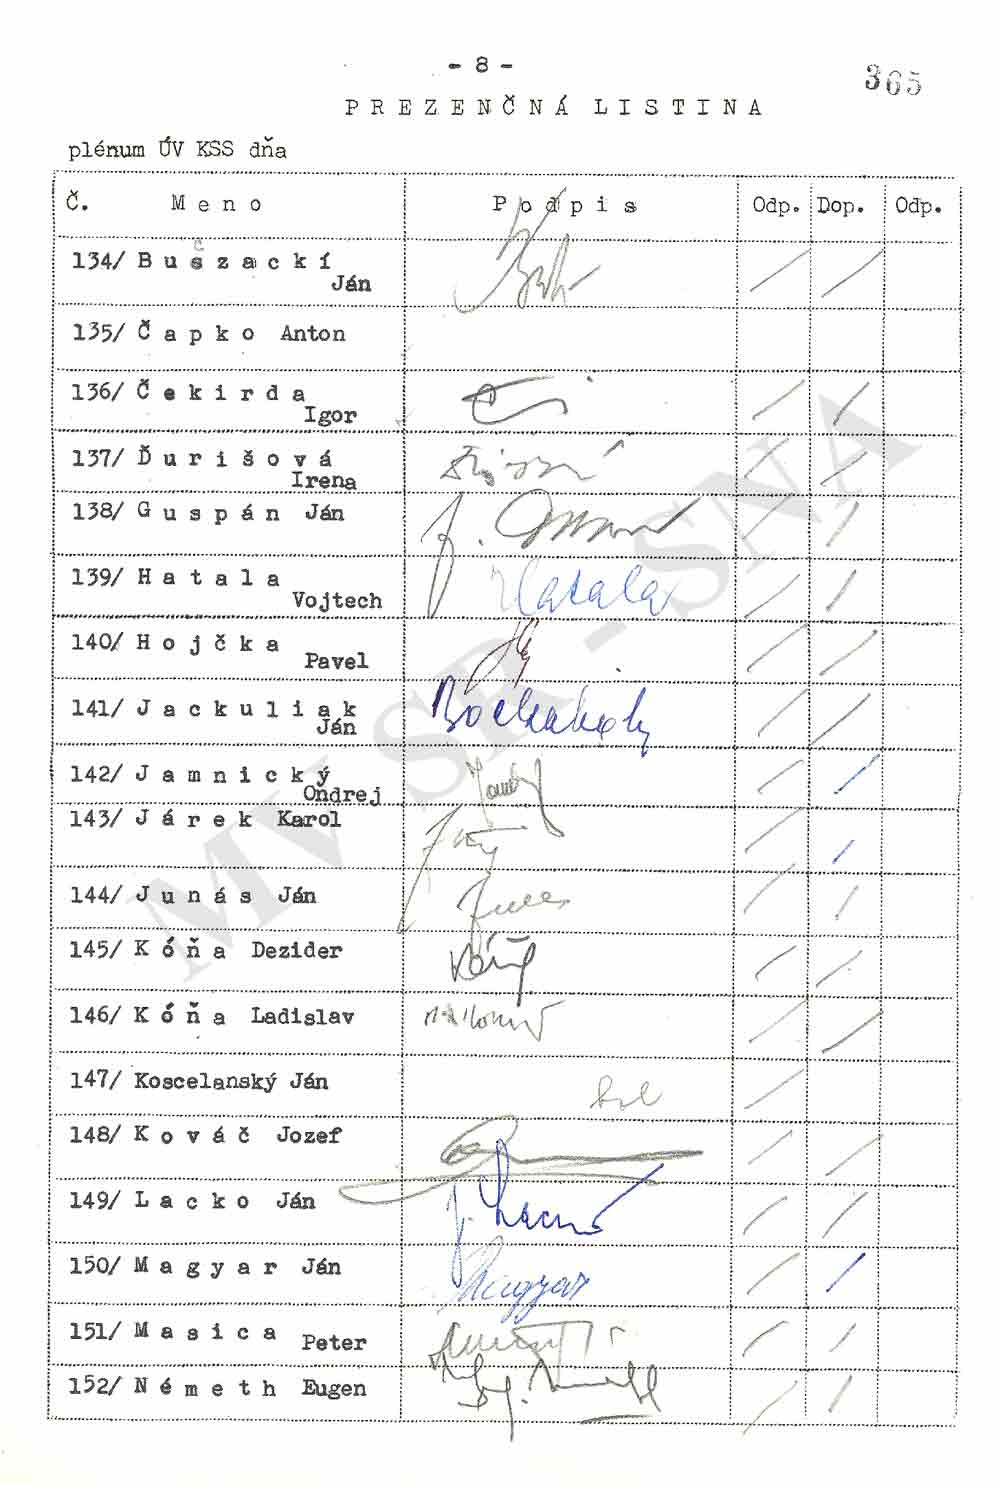 - 8 -
365
P R E Z E N Č N Á  L I S T I N A
plénum ÚV KSS dňa
Č. M e n o P o d p i s Odp. Dop. Odp.
134/ B u š z a c k í
Ján
135/ Č a p k o Anton
136/ Č e k i r d a
Igor
137/ Ď u r i š o v á
Irena
138/ G u s p á n Ján
139/ H a t a l a
Vojtech Hatala
140/ H o j č k a
Pavel
141/ J a c k u l i a k
Ján
142/ J a m n i c k ý
Ondrej
143/ J á r e k Karol
144/ J u n á s Ján
145/ K ó ň a Dezider
146/ K ó ň a Ladislav
147/ Koscelanský Ján
148/ K o v á č Jozef
149/ L a c k o Ján
150/ M a g y a r Ján Magyar
151/ M a s i c a
Peter
152/ N é m e t h Eugen
MV SR - SNA